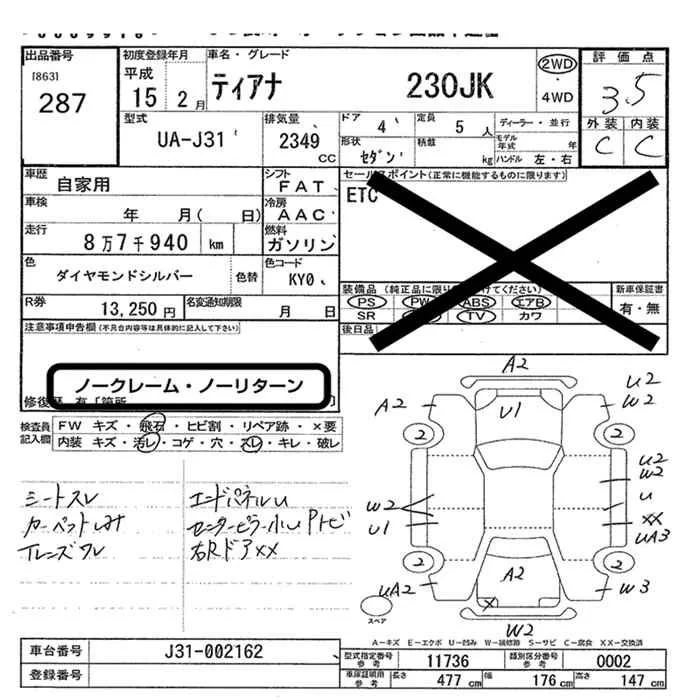 出品番号 初度登録年月 車名・グレード 評価点
[863] 平成 ティアナ 230JK 2WD 3.5
287 15 2月 4WD
型式 排気量 ドア 定員 ディーラー・並行 外装 内装
UA-J31 2349 CC 4 5人 モデル年式 年 C C
形状 セダン 積載 kg ハンドル 左・右
車歴 シフト セールスポイント(正常に機能するものに限ります)
自家用 FAT ETC
車検 冷房
年 月( 日) AAC
走行 燃料
8万7千940 km ガソリン
色 色コード 装備品(純正品に限り けてください) 新車保証書
ダイヤモンドシルバー 色替 KY0 PS PW ABS エアB 有・無
R券 13,250円 名変通知期限 月 日 SR TV カワ
注意事項申告欄(不具合内容等は具体的に記入して下さい) 後日品
ノークレーム・ノーリターン
修復歴 有「箇所
検査員記入欄 FW キズ・飛石・ヒビ割・リペア跡・×要
内装 キズ・汚レ・コゲ・穴・スレ・キレ・破レ
シートスレ エンドパネルU
カーペットしみ センターピラー小U Pトビ
右Rドア××
A2
A2 U1 U2
W2
2 2
U2
W2
W2 U
U1 ××
UA3
2 2
UA2 A2 W3
×
スペア W2
A−キズ E−エクボ U−凹み W−補修跡 S−サビ C−腐食 XX−交換済
車台番号 J31-002162 型式指定番号 参考 11736 類別区分番号 参考 0002
登録番号 車庫証明用 参考 長さ 477cm 幅 176cm 高さ 147cm